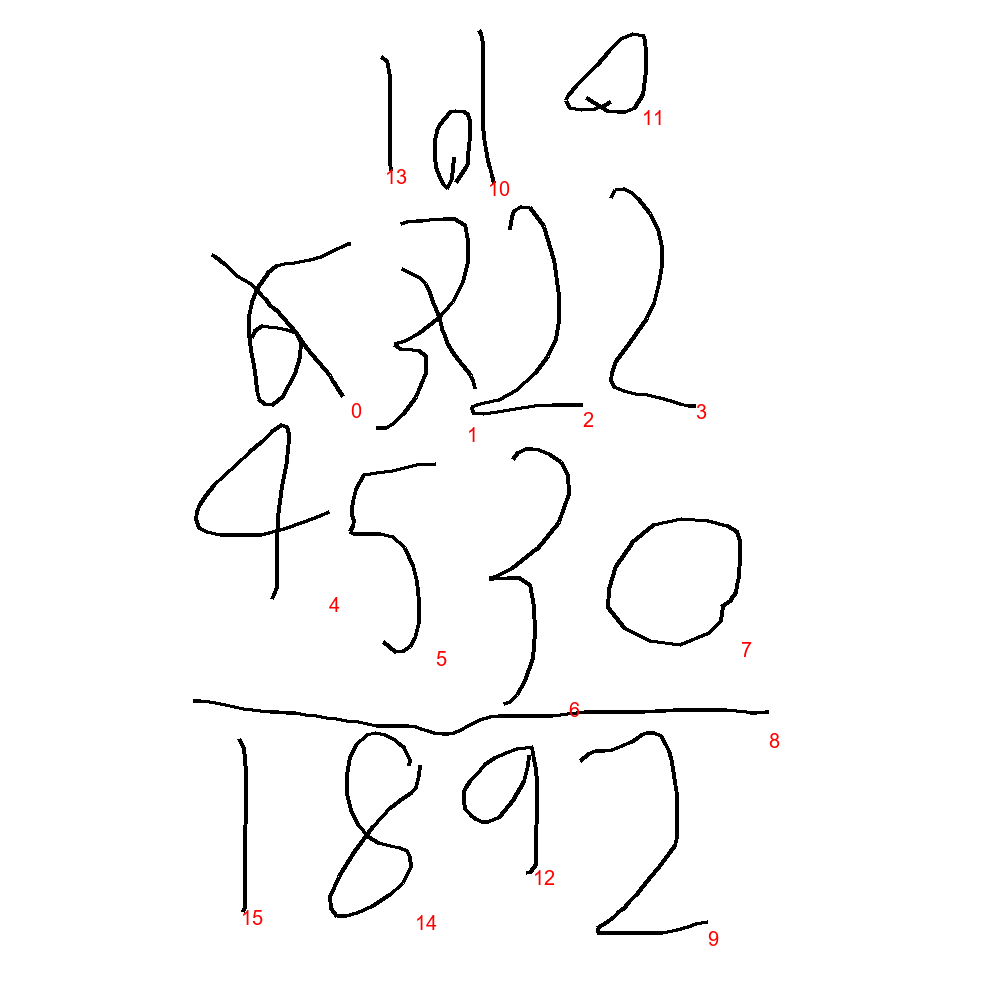 1 0 1 0
13 10 11
6 3 2 2
0 1 2 3
4 5 3 0
4 5 6 7
8
1 8 9 2
15 14 12 9